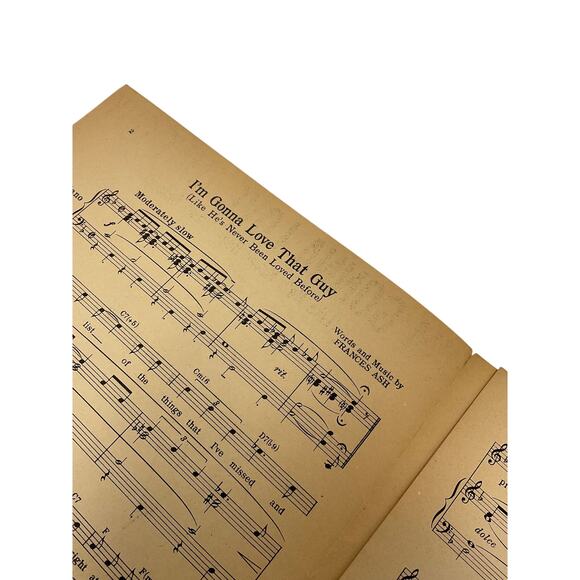 2
I'm Gonna Love That Guy
(Like He's Never Been Loved Before)
Words and Music by
FRANCES ASH
Moderately slow
f
rit.
C7(+5) Cm6 D7(♭9)
list of the things that I've missed and
F
dolce